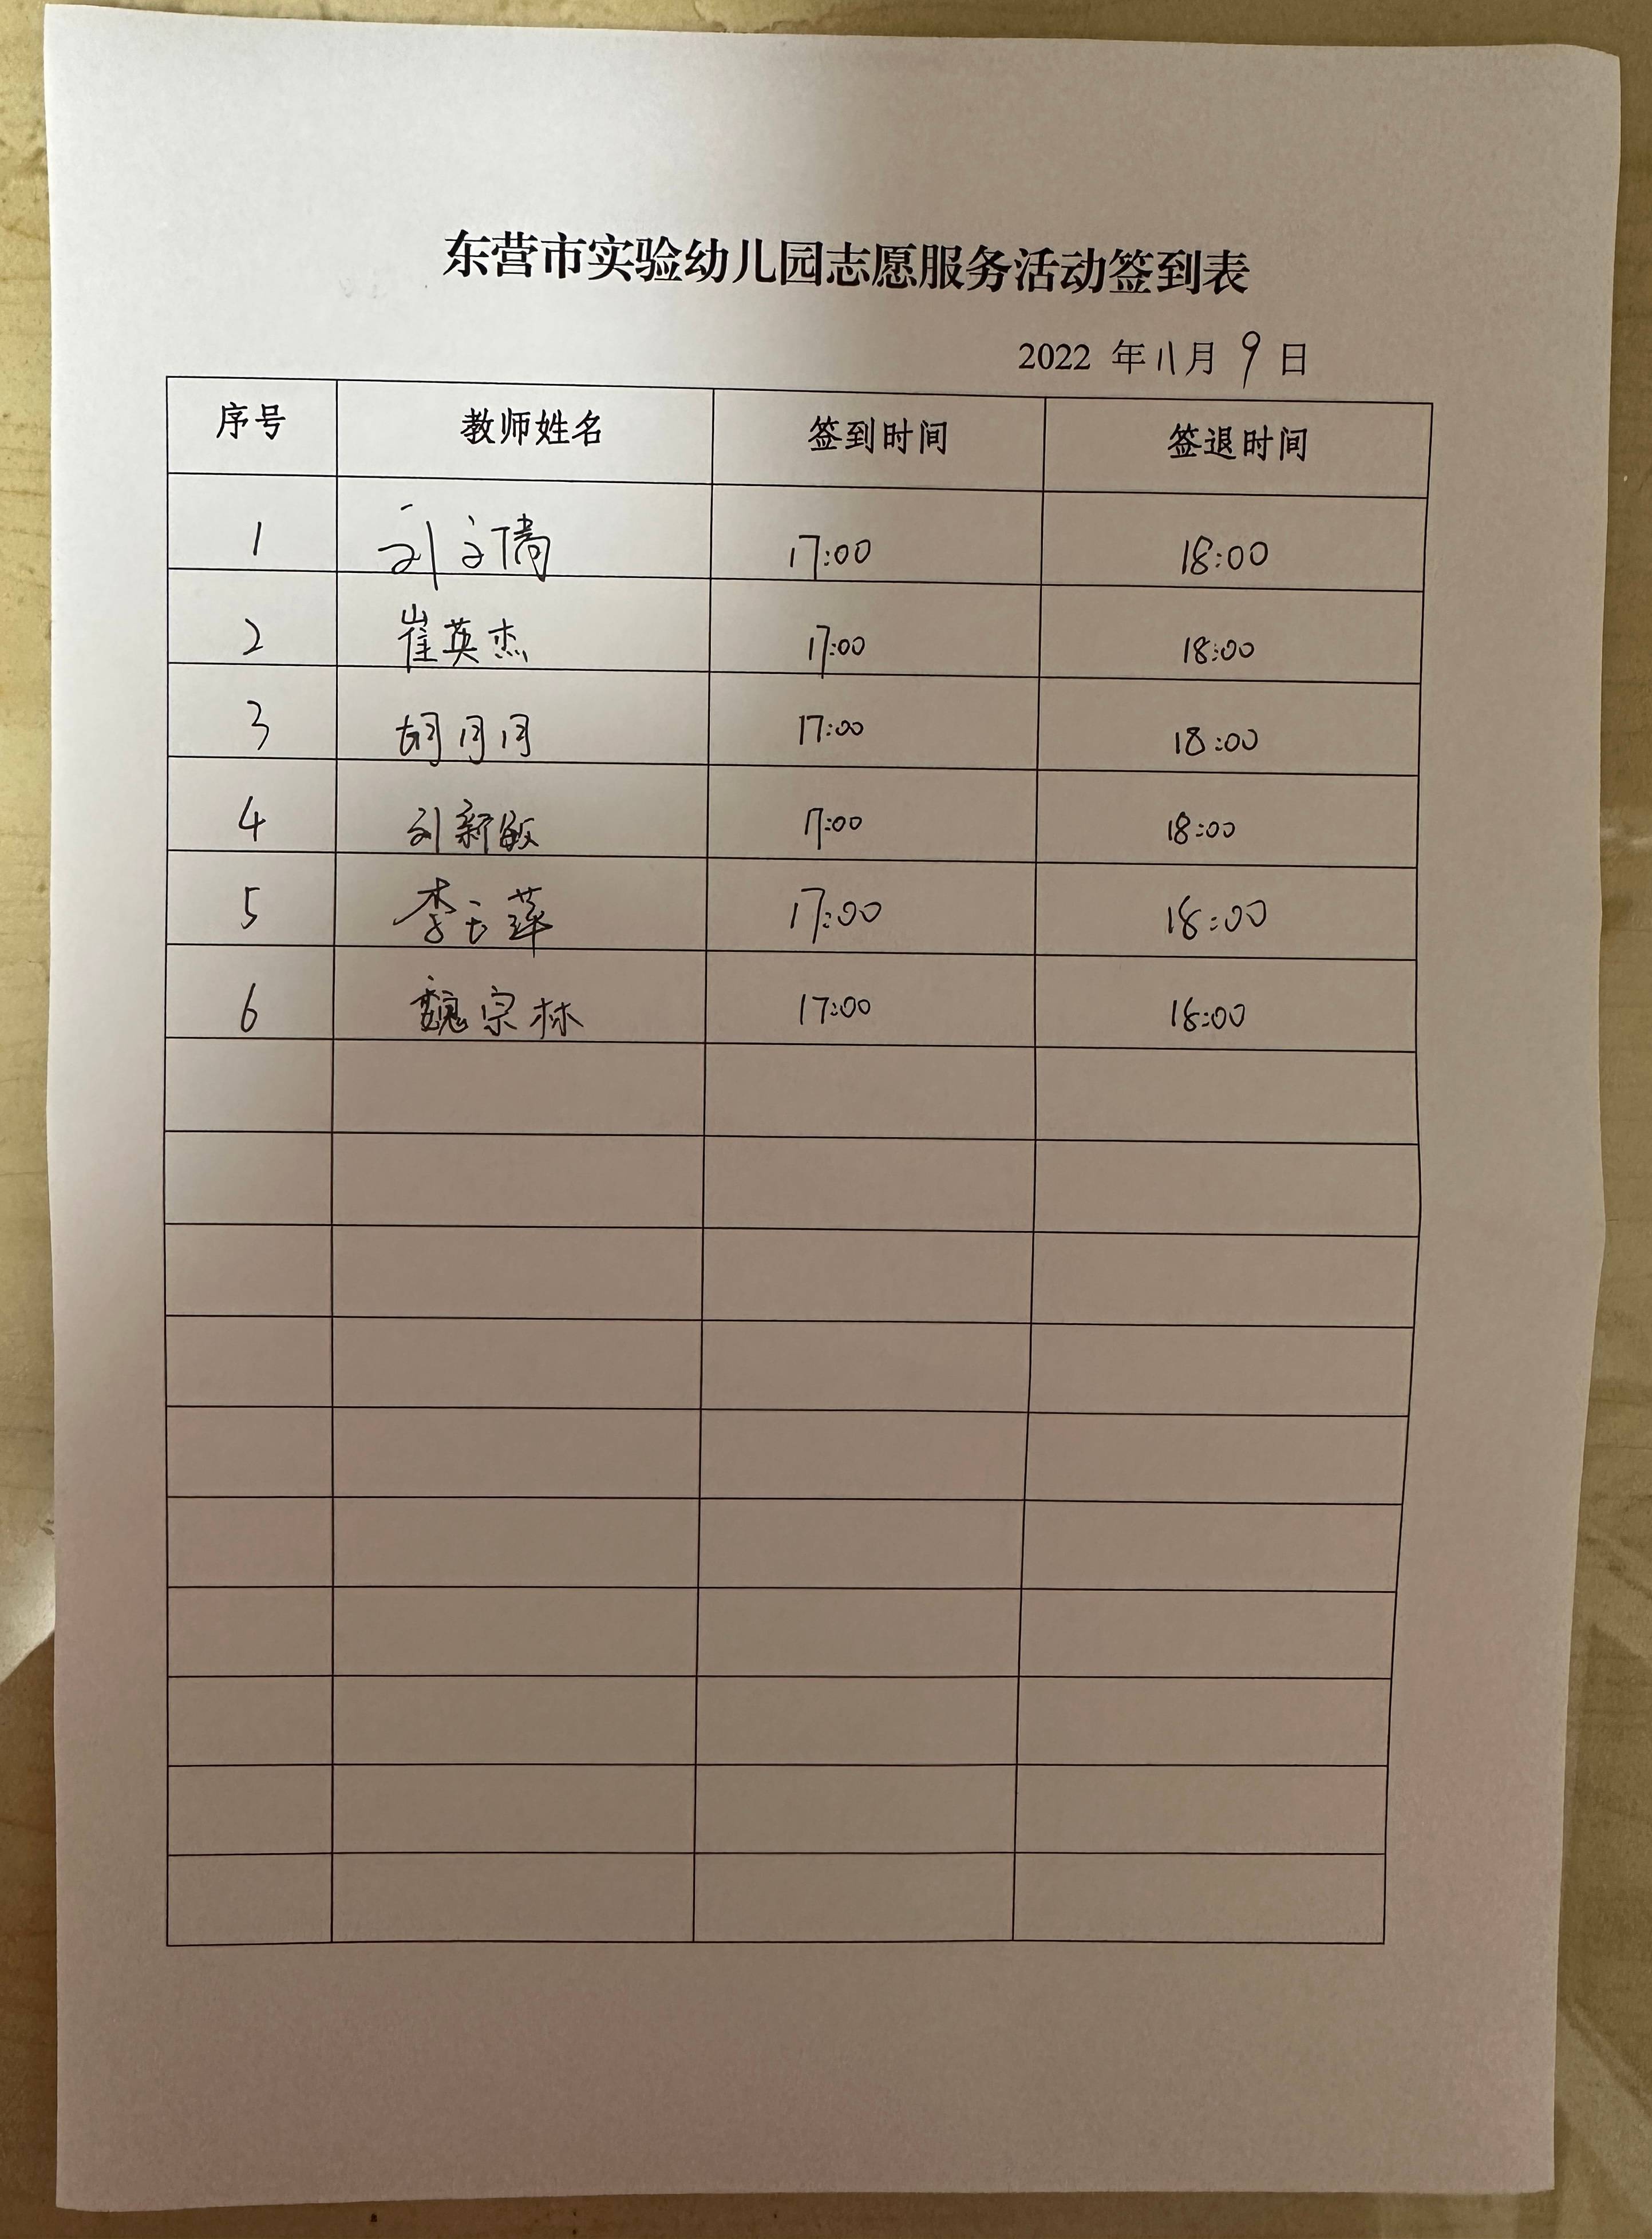 东营市实验幼儿园志愿服务活动签到表
2022 年 11 月 9 日
序号 教师姓名 签到时间 签退时间
1 刘文倩 17:00 18:00
2 崔英杰 17:00 18:00
3 胡月月 17:00 18:00
4 刘新敏 17:00 18:00
5 李玉萍 17:00 18:00
6 魏宗林 17:00 18:00